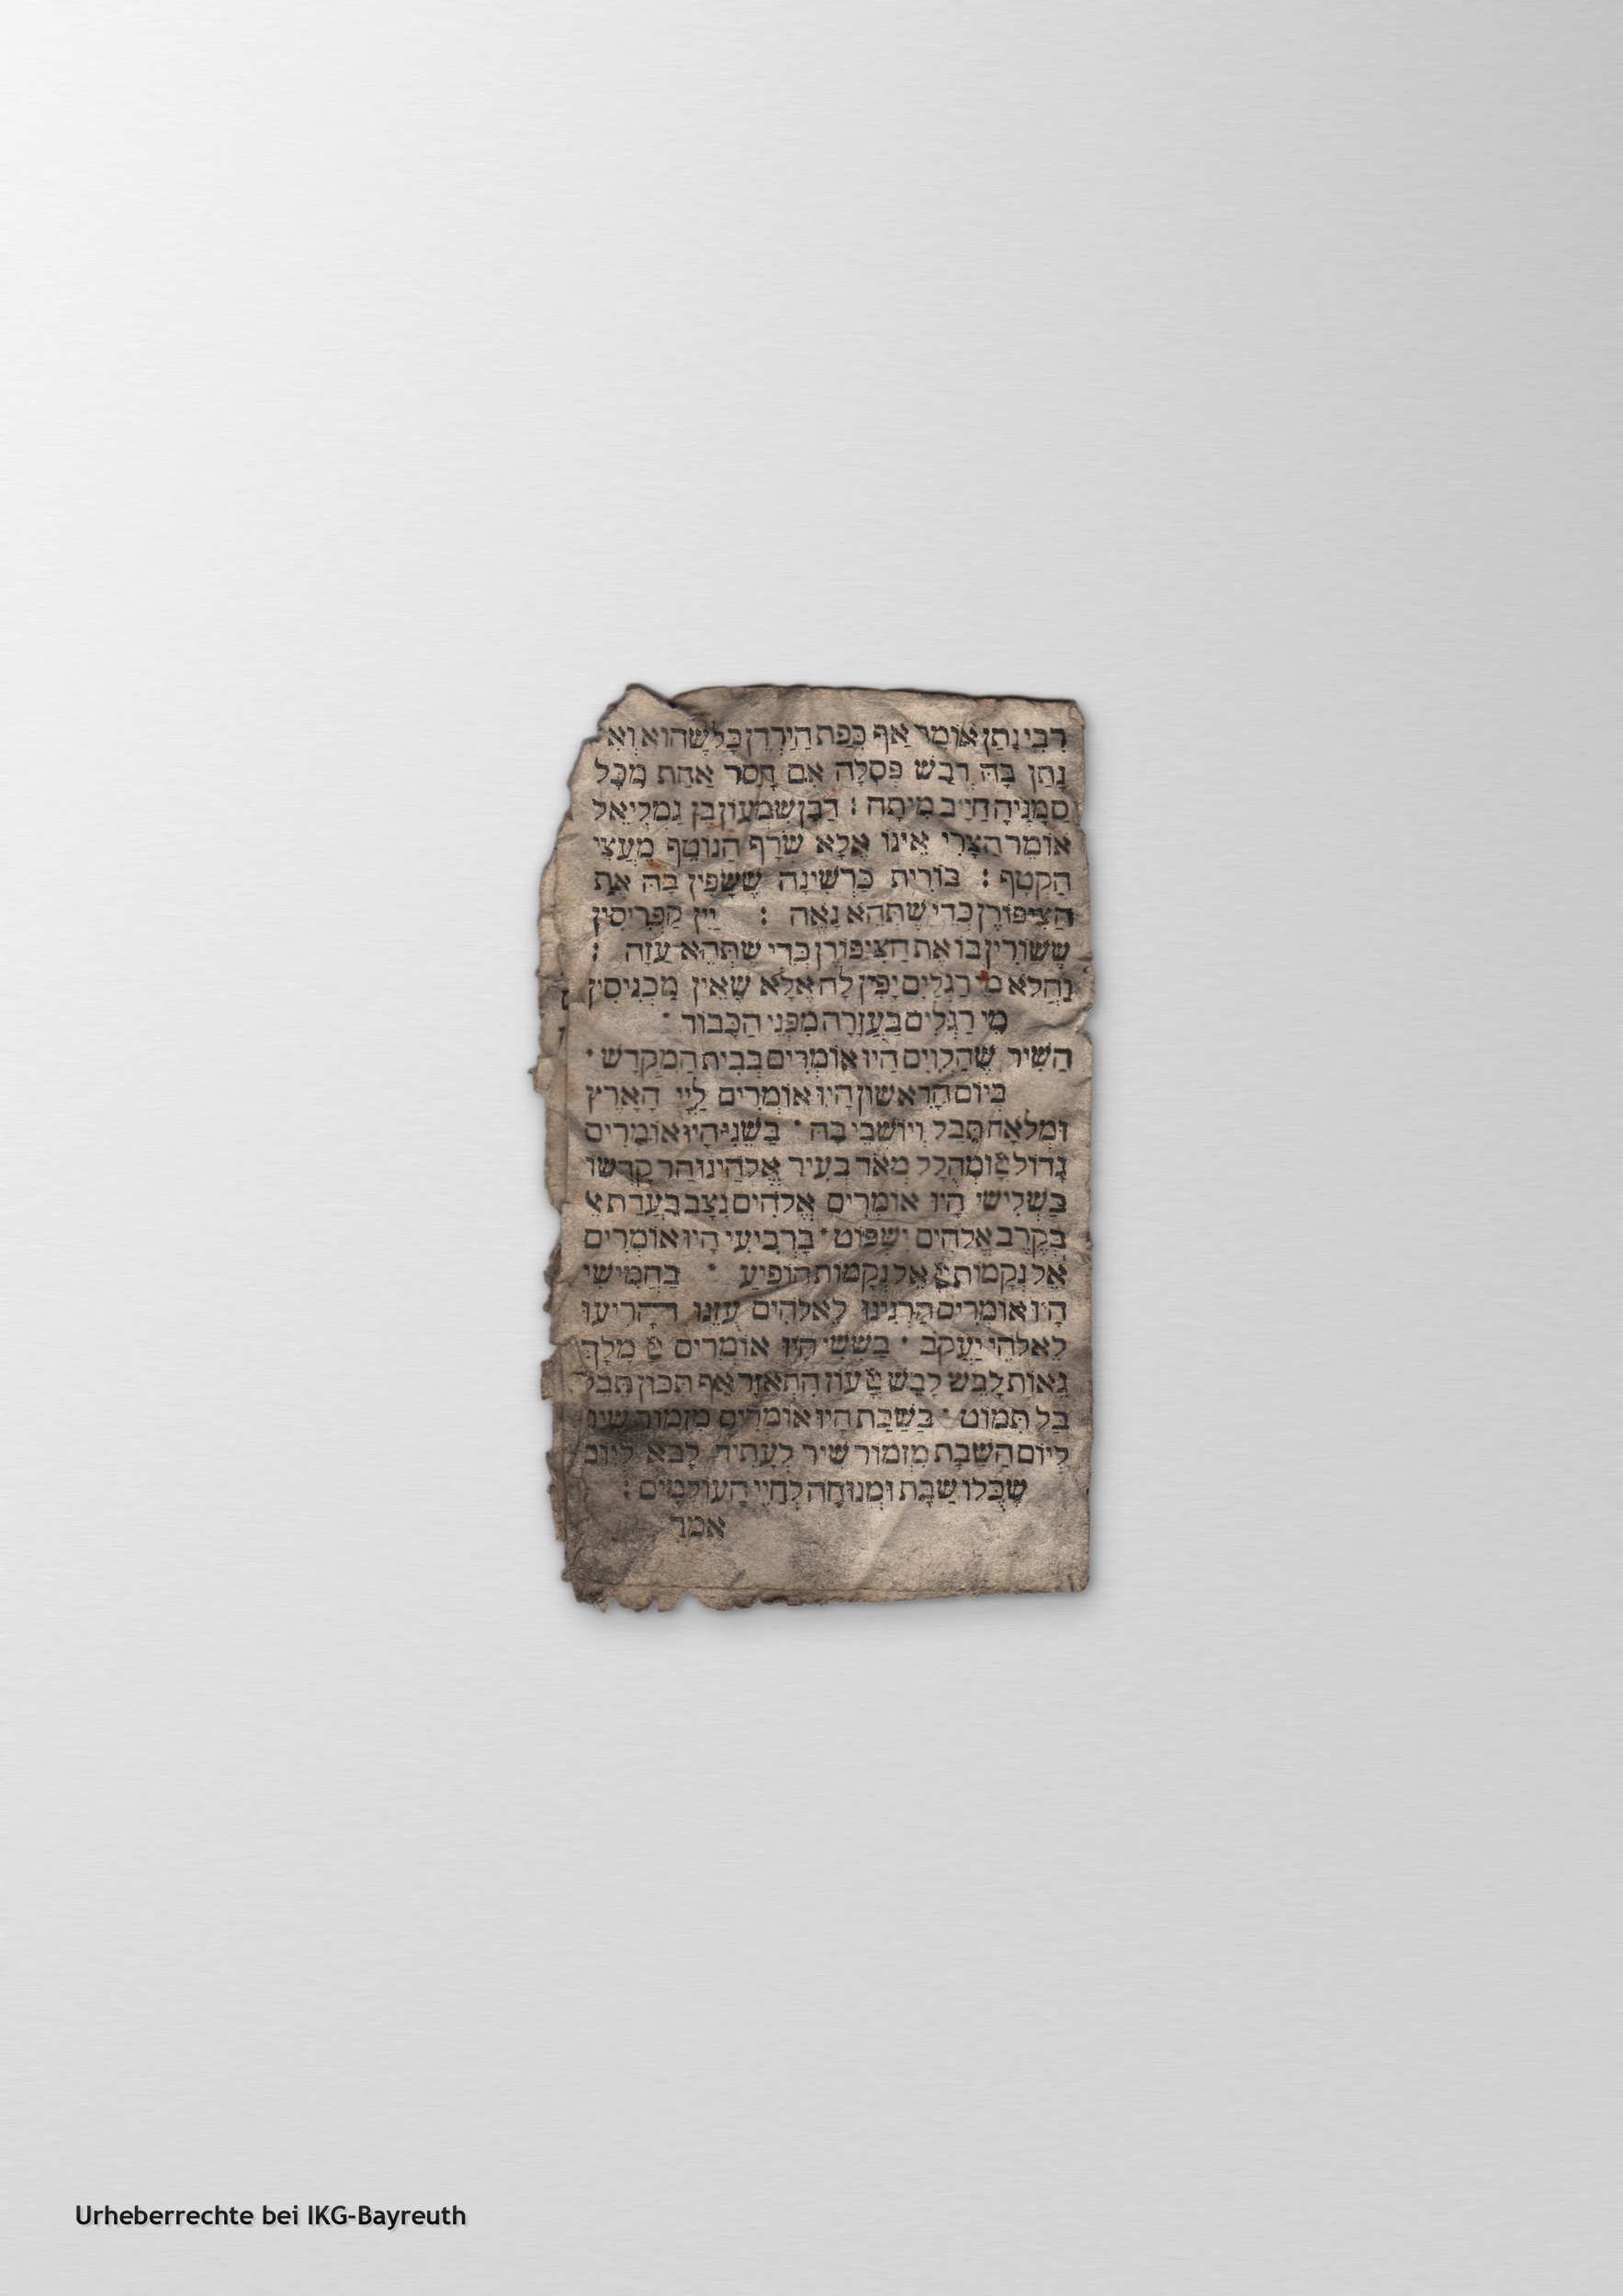 רַבִּי נָתָן אוֹמֵר אַף כִּפַּת הַיַּרְדֵּן כָּל שֶׁהוּא וְאִ
נָתַן בָּהּ דְּבַשׁ פְּסָלָהּ אִם חָסַר אַחַת מִכָּל
סַמָּנֶיהָ חַיָּב מִיתָה : רַבָּן שִׁמְעוֹן בֶּן גַּמְלִיאֵל
אוֹמֵר הַצֳּרִי אֵינוֹ אֶלָּא שְׂרָף הַנּוֹטֵף מֵעֲצֵי
הַקְּטָף : בּוֹרִית כַּרְשִׁינָה שֶׁשָּׁפִין בָּהּ אֶת
הַצִּיפּוֹרֶן כְּדֵי שֶׁתְּהֵא נָאָה : יֵין קַפְרִיסִין
שֶׁשּׁוֹרִין בּוֹ אֶת הַצִּיפּוֹרֶן כְּדֵי שֶׁתְּהֵא עַזָּה :
וַהֲלֹא מֵי רַגְלַיִם יָפִין לָהּ אֶלָּא שֶׁאֵין מַכְנִיסִין
מֵי רַגְלַיִם בָּעֲזָרָה מִפְּנֵי הַכָּבוֹד
הַשִּׁיר שֶׁהַלְוִיִּם הָיוּ אוֹמְרִים בְּבֵית הַמִּקְדָּשׁ ·
בְּיוֹם הָרִאשׁוֹן הָיוּ אוֹמְרִים לַיְיָ הָאָרֶץ
וּמְלֹאָהּ תֵּבֵל וְיוֹשְׁבֵי בָהּ · בַּשֵּׁנִי הָיוּ אוֹמְרִים
גָּדוֹל יְיָ וּמְהֻלָּל מְאֹד בְּעִיר אֱלֹהֵינוּ הַר קָדְשׁוֹ
בַּשְּׁלִישִׁי הָיוּ אוֹמְרִים אֱלֹהִים נִצָּב בַּעֲדַת אֵ
בְּקֶרֶב אֱלֹהִים יִשְׁפּוֹט · בָּרְבִיעִי הָיוּ אוֹמְרִים
אֵל נְקָמוֹת יְיָ אֵל נְקָמוֹת הוֹפִיעַ · בַּחֲמִישִׁי
הָיוּ אוֹמְרִים הַרְנִינוּ לֵאלֹהִים עֻזֵּנוּ הָרִיעוּ
לֵאלֹהֵי יַעֲקֹב · בַּשִּׁשִּׁי הָיוּ אוֹמְרִים יְיָ מָלָךְ
גֵּאוּת לָבֵשׁ לָבֵשׁ יְיָ עוֹז הִתְאַזָּר אַף תִּכּוֹן תֵּבֵל
בַּל תִּמּוֹט · בַּשַּׁבָּת הָיוּ אוֹמְרִים מִזְמוֹר שִׁיר
לְיוֹם הַשַּׁבָּת מִזְמוֹר שִׁיר לְעָתִיד לָבֹא לְיוֹם
שֶׁכֻּלּוֹ שַׁבָּת וּמְנוּחָה לְחַיֵּי הָעוֹלָמִים :
אמר
Urheberrechte bei IKG-Bayreuth